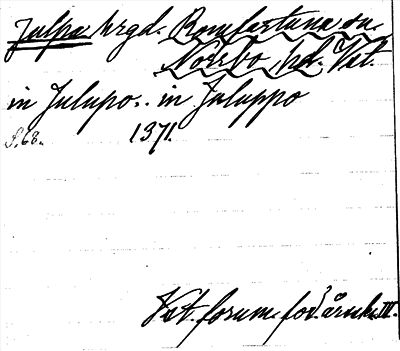 Julpa hrgd. Romfartuna sn.
Norrbo hd. Vst.
in Julupo.. in Juluppo
s. 68. 1371.
Vst. forum. for. årsuk. III.